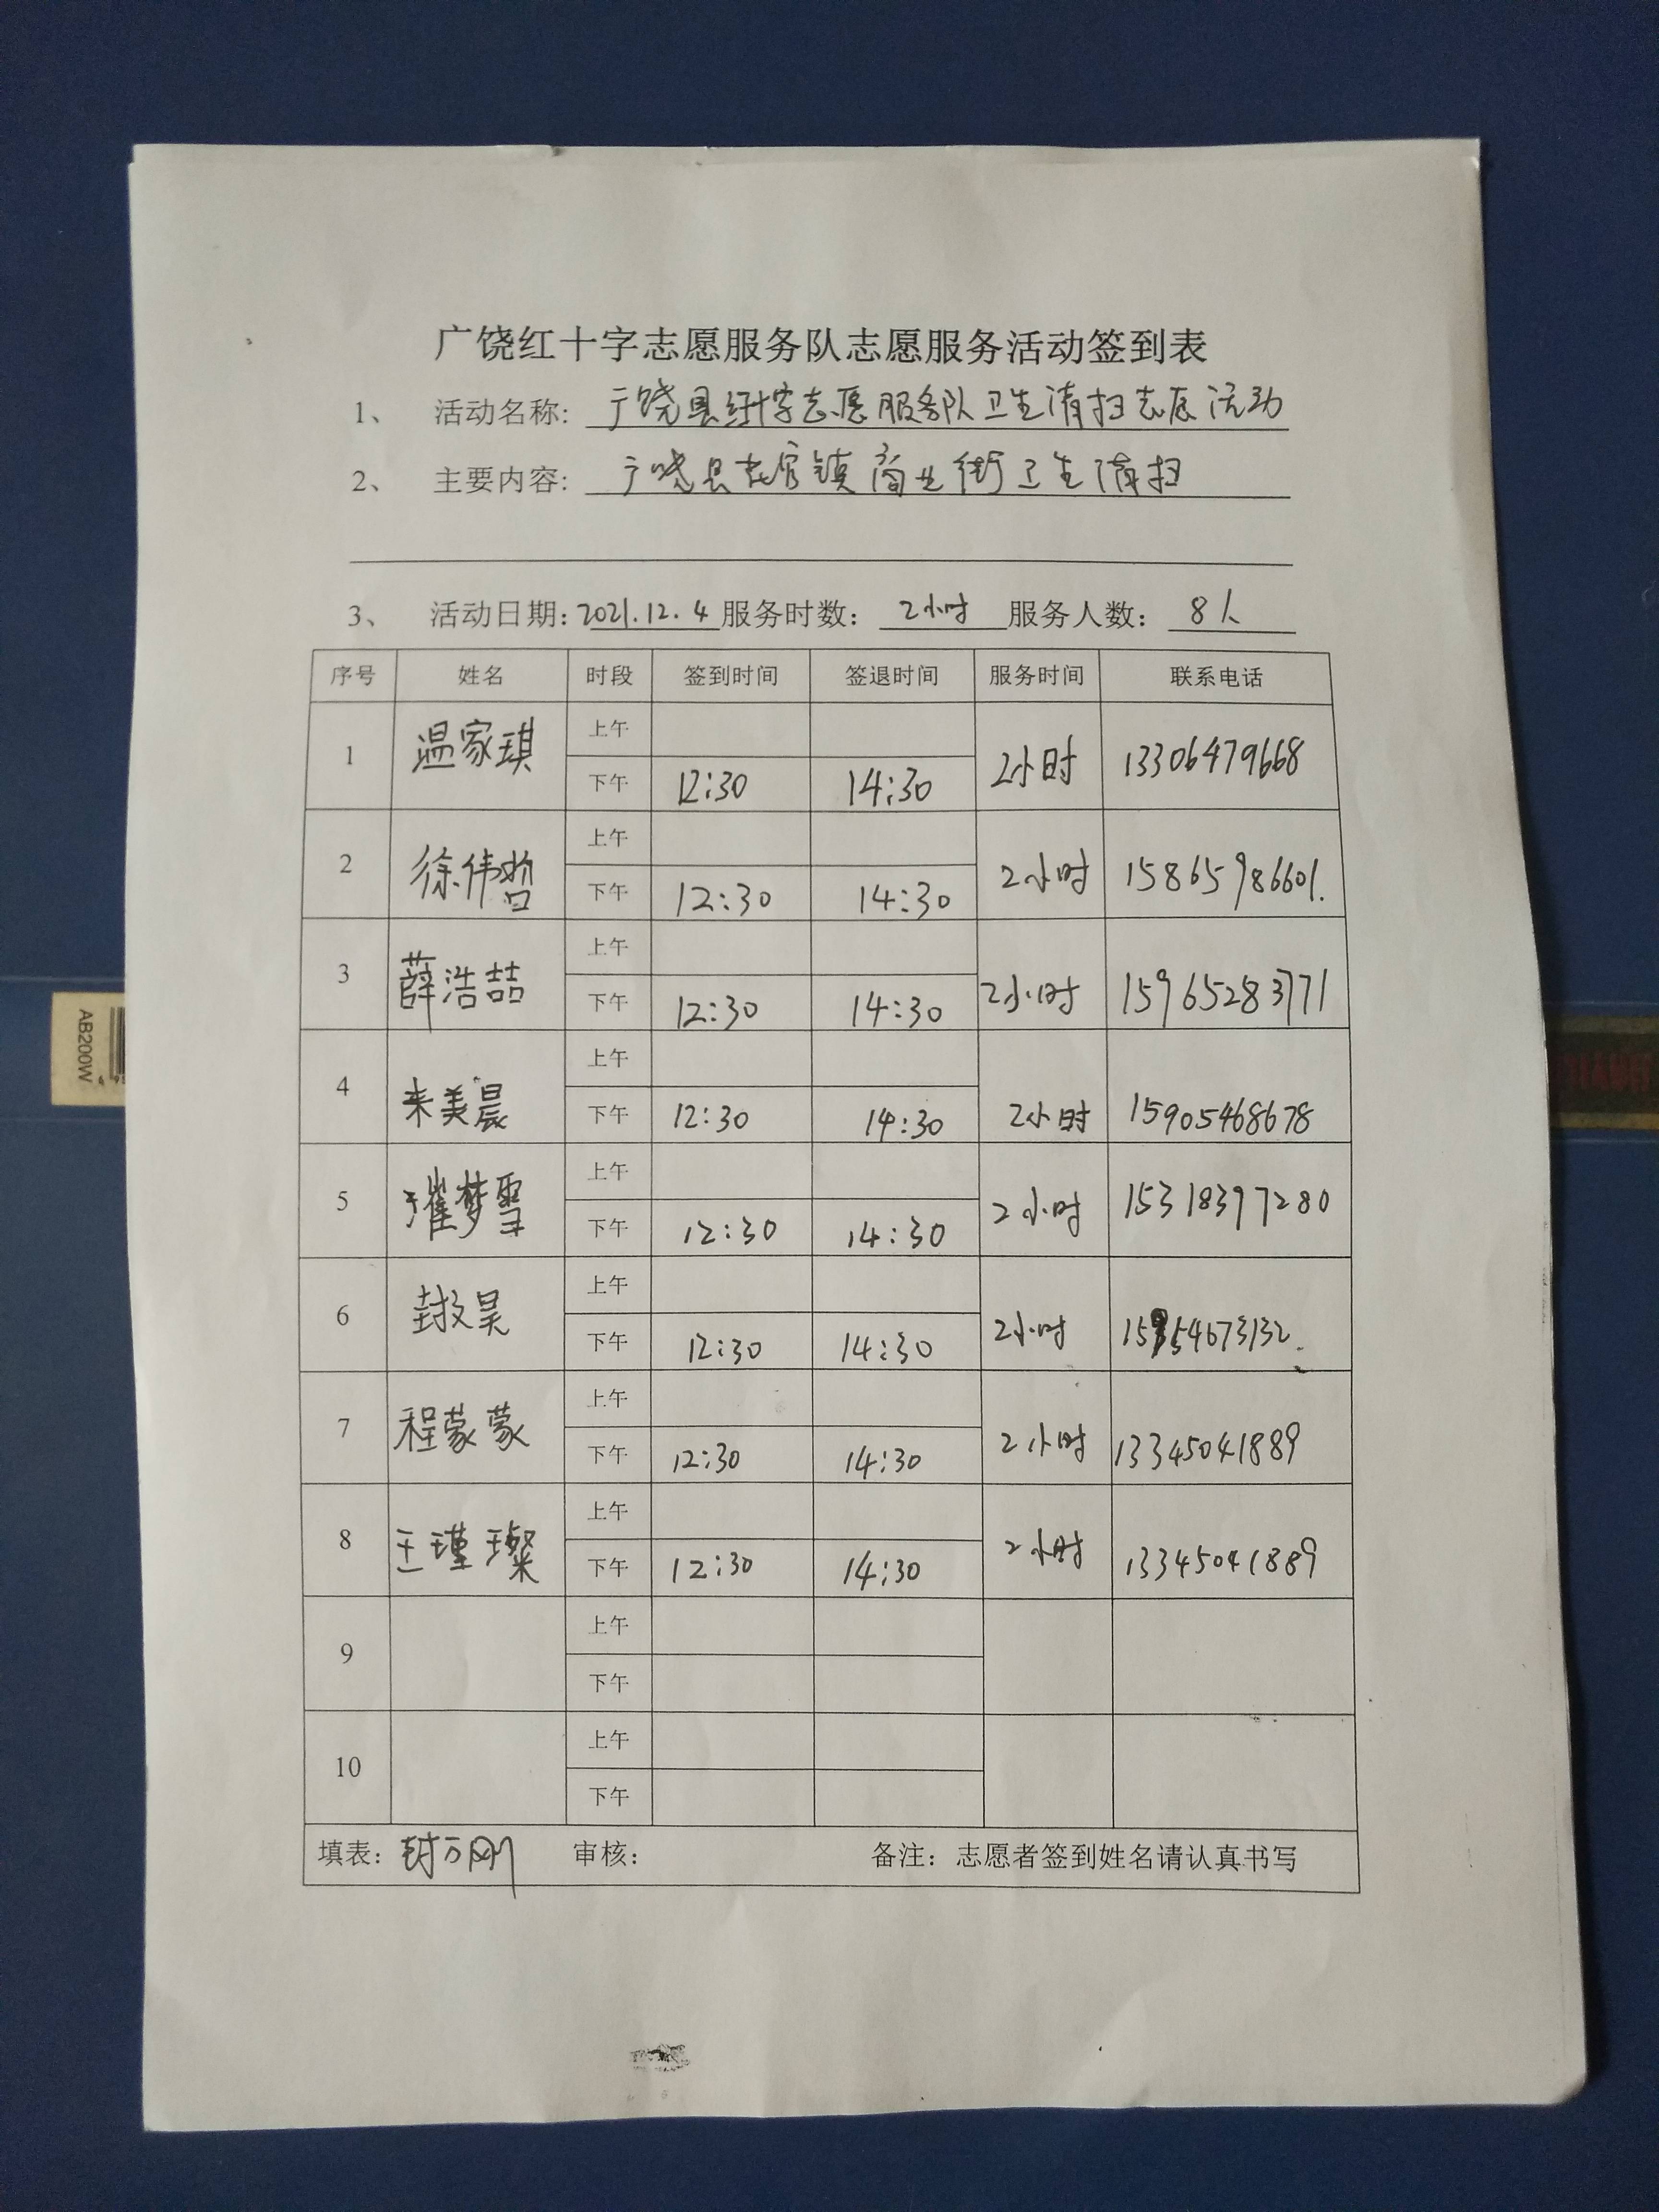 广饶红十字志愿服务队志愿服务活动签到表
1、 活动名称: 广饶县红十字志愿服务队卫生清扫志愿活动
2、 主要内容: 广饶县花官镇商业街卫生清扫
3、 活动日期: 2021.12.4 服务时数: 2小时 服务人数: 8人
序号 姓名 时段 签到时间 签退时间 服务时间 联系电话
1 温家琪 上午
下午 12:30 14:30 2小时 13306479668
2 徐伟哲 上午
下午 12:30 14:30 2小时 15865986601.
3 薛浩喆 上午
下午 12:30 14:30 2小时 15965283771
4 来美晨 上午
下午 12:30 14:30 2小时 15905468678
5 梦雪 上午
下午 12:30 14:30 2小时 15318397280
6 封文昊 上午
下午 12:30 14:30 2小时 15954673132.
7 程蒙蒙 上午
下午 12:30 14:30 2小时 13345041889
8 王瑾璨 上午
下午 12:30 14:30 2小时 13345041889
9 上午
下午
10 上午
下午
填表: 封万刚 审核: 备注: 志愿者签到姓名请认真书写
AB200W